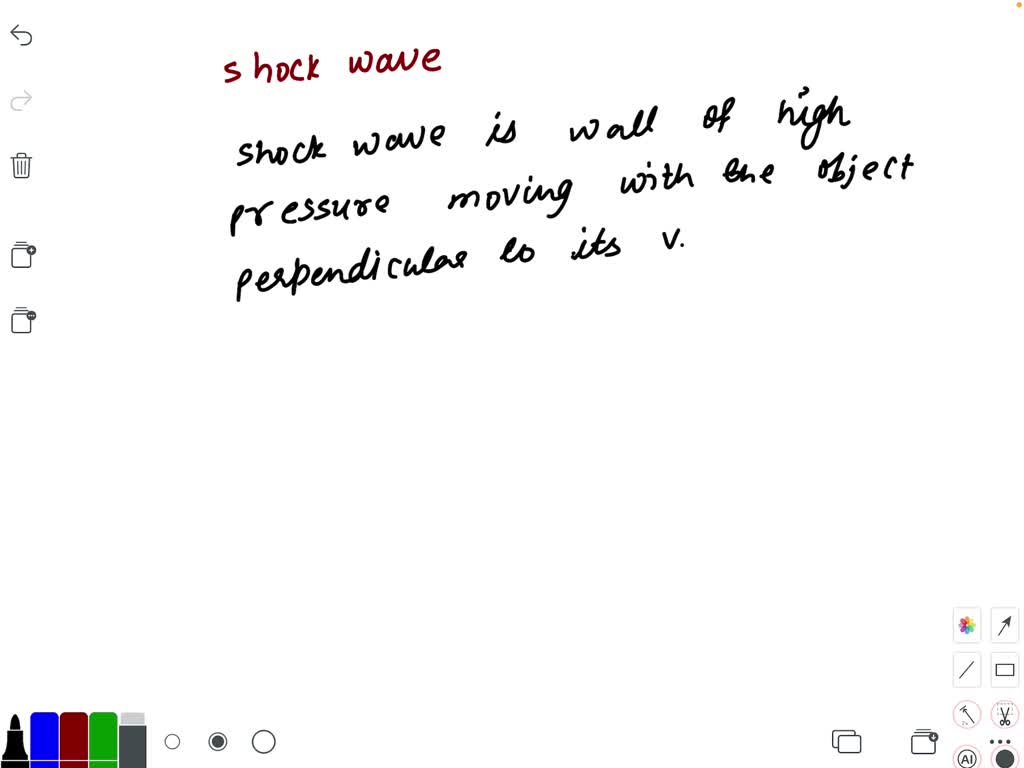 shock wave
shock wave is wall of high
pressure moving with the object
perpendicular to its v.
AI